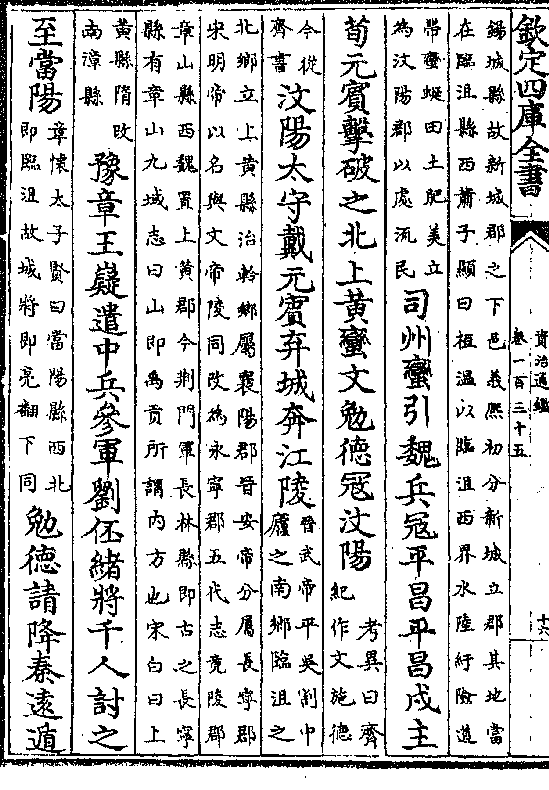 欽定四庫全書
資治通鑑
卷一百三十五
十六
錫城縣故新城郡之下邑義熙初分新城立郡其地當
在臨沮縣西蕭子顯曰桓温以臨沮西界水陸紆險道
帶蠻蜒田土肥美立
為汶陽郡以處流民
司州蠻引魏兵冦平昌平昌戍主
荀元賔擊破之北上黄蠻文勉德冦汶陽
考異曰齊
紀作文施德
今從
齊書
汶陽太守戴元賔弃城奔江陵
晉武帝平吳割中
廬之南鄉臨沮之
北鄉立上黄縣治軨鄉屬襄陽郡晉安帝分屬長寧郡
宋明帝以名與文帝陵同改為永寧郡五代志竟陵郡
章山縣西魏置上黄郡今荆門軍長林縣即古之長寧
縣有章山九域志曰山即禹貢所謂内方也宋白曰上
黄縣隋改
南漳縣
豫章王嶷遣中兵參軍劉伾緒將千人討之
至當陽
章懷太子賢曰當陽縣西北
即臨沮故城將即亮翻下同
勉德請降秦遠遁